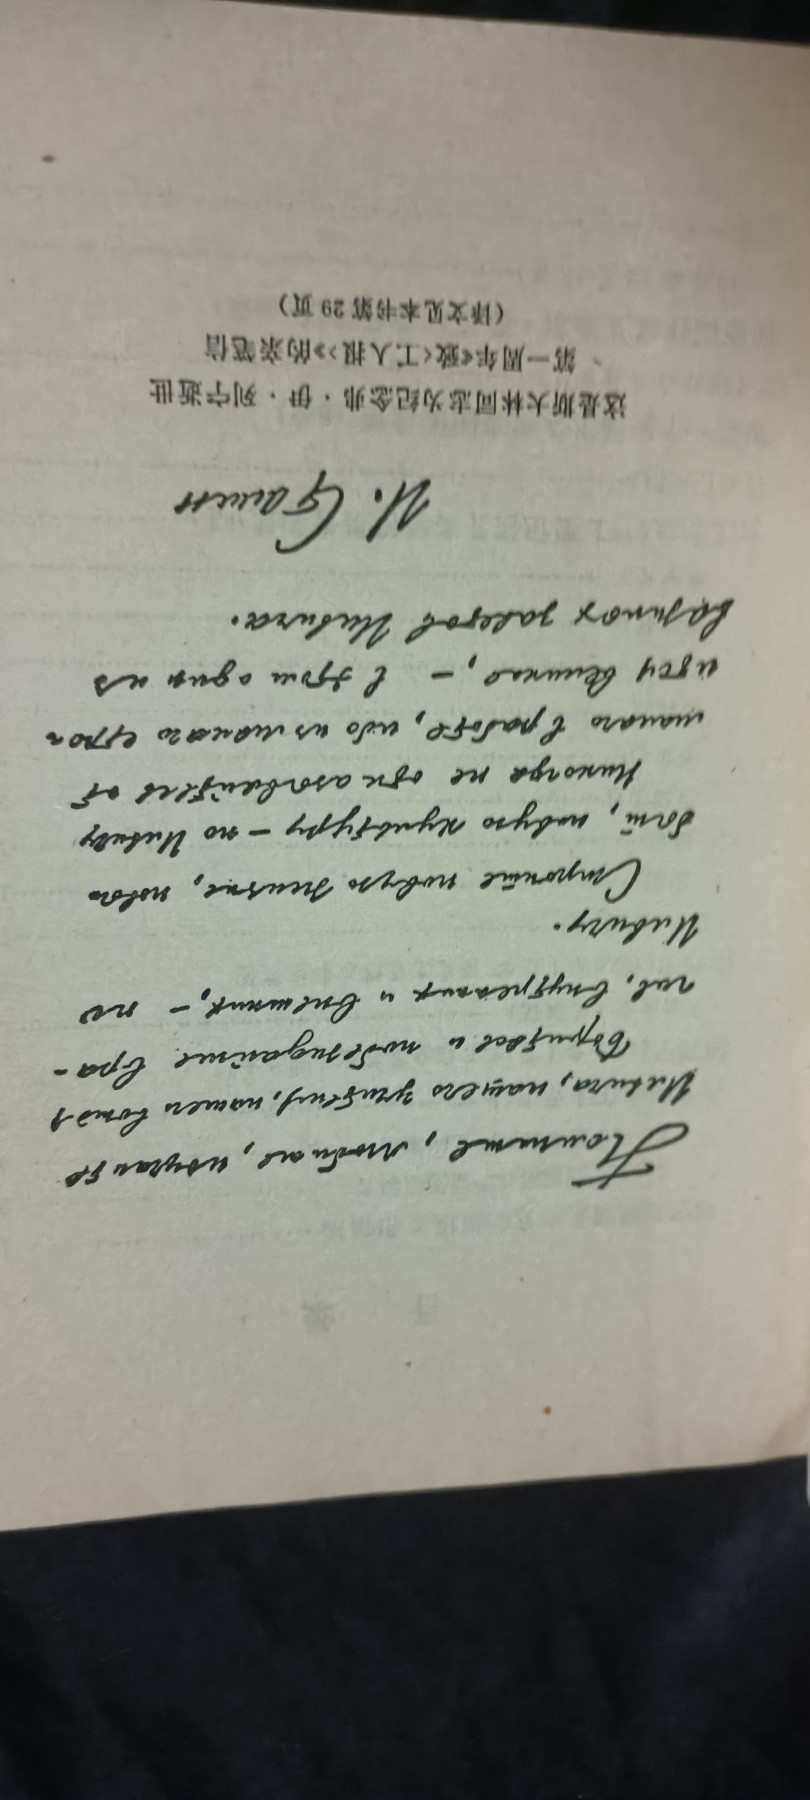 Помните, любите, изучайте
Ильича, нашего учителя, нашего вождя.
Боритесь и побеждайте вра-
гов, внутренних и внешних, – по
Ильичу.
Стройте новую жизнь, новый
быт, новую культуру – по Ильичу
Никогда не отказывайтесь от
малого в работе, ибо из малого стро-
ится великое, – в этом один из
важных заветов Ильича.
И. Сталин
这是斯大林同志为纪念弗·伊·列宁逝世
第一周年《致〈工人报〉》的亲笔信
(译文见本书第29页)